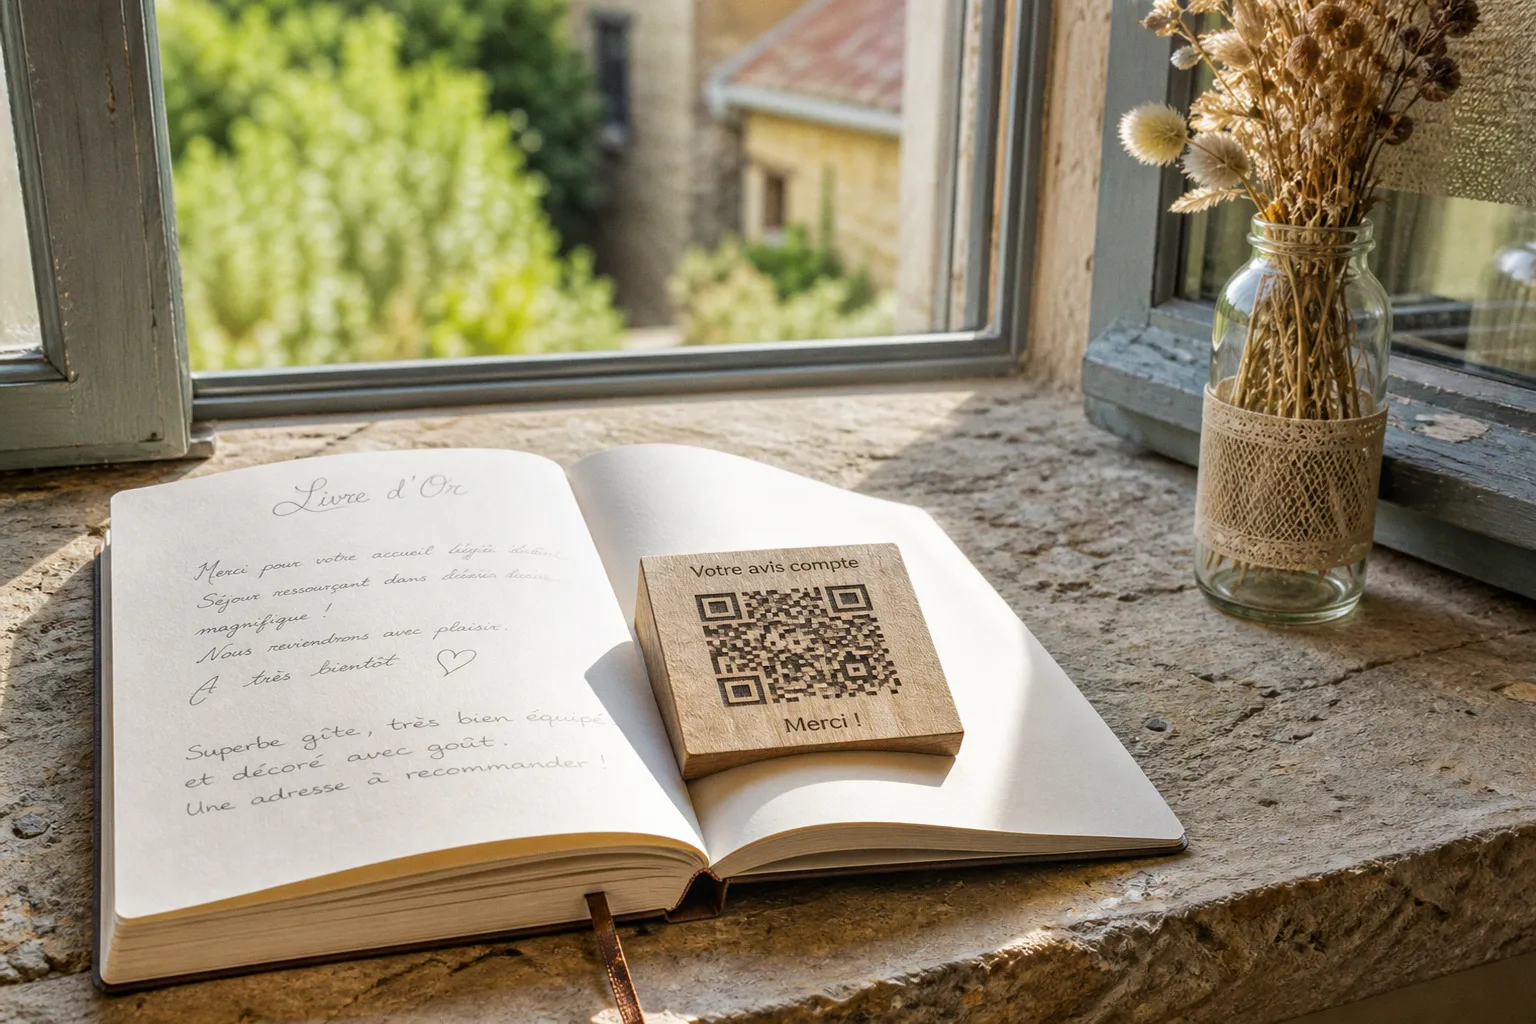 Livre d'Or
Merci pour votre accueil
Séjour ressourçant dans
magnifique !
Nous reviendrons avec plaisir.
A très bientôt
Superbe gîte, très bien équipé
et décoré avec goût.
Une adresse à recommander !
Votre avis compte
Merci !